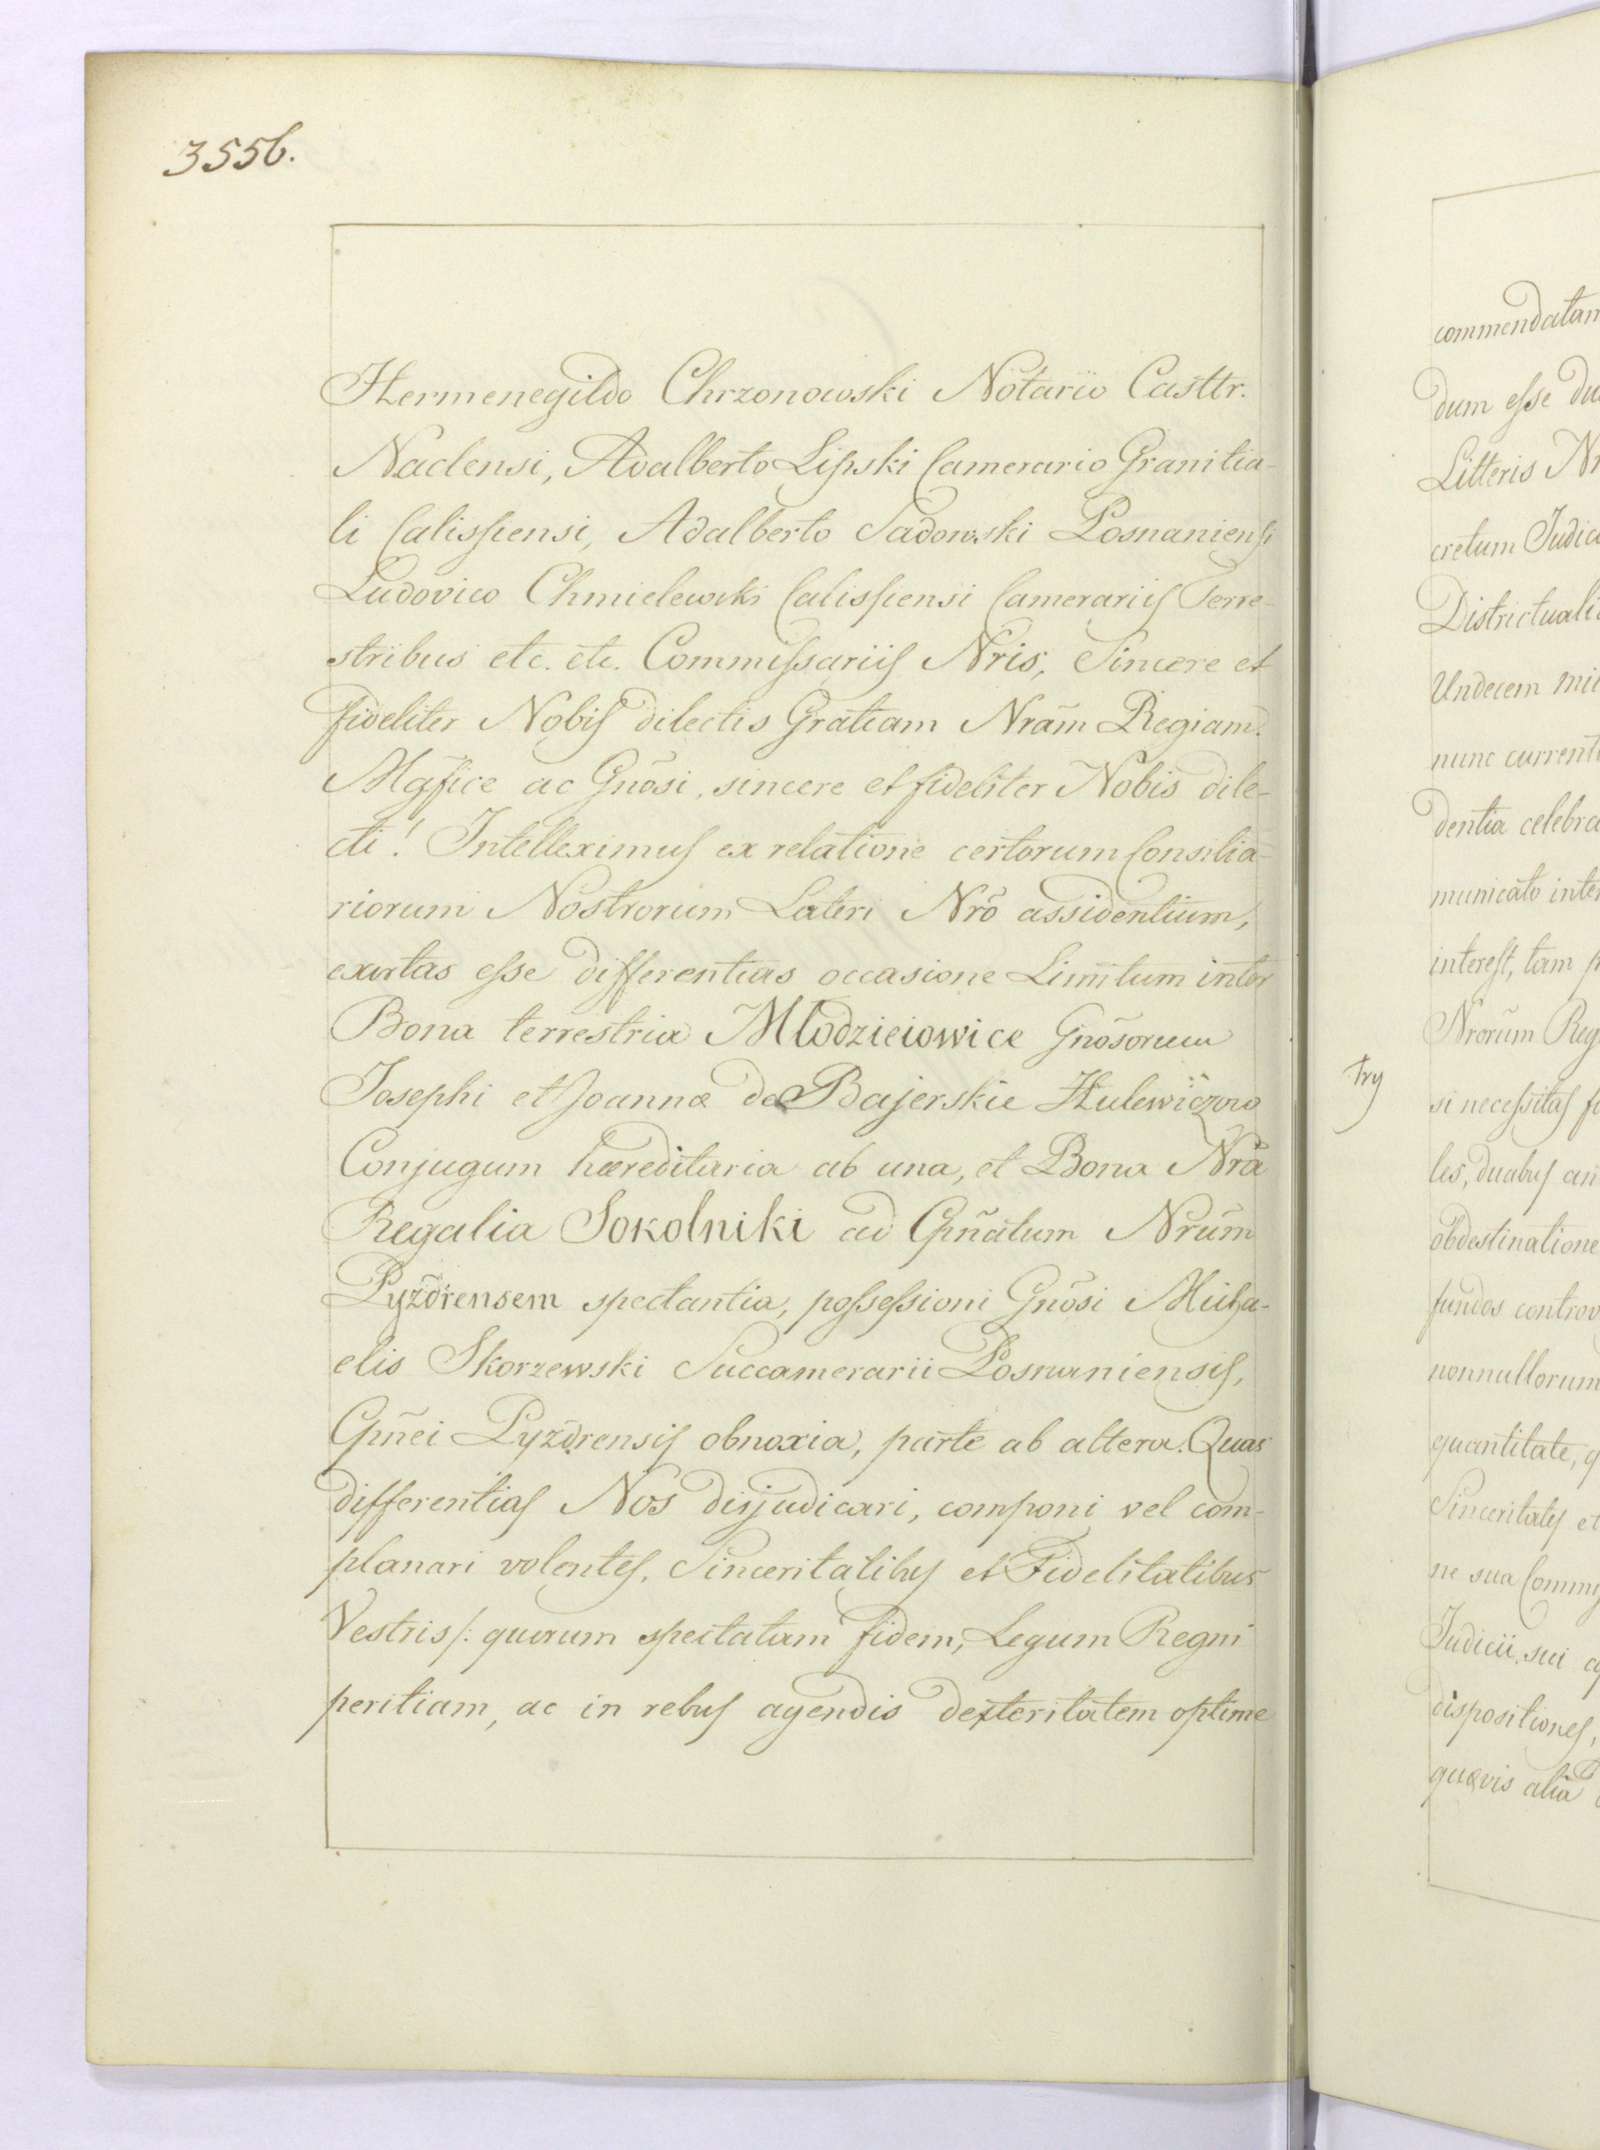 3556.
Hermenegildo Chrzonowski Notario Casttr.
Naclensi, Adalberto Lipski Camerario Granitia-
li Calissiensi, Adalberto Sadowski Posnaniensi
Ludovico Chmielewski Calissiensi Camerariis Terre-
stribus etc. etc. Commissariis Nris, Sincere et
fideliter Nobis dilectis Gratiam Nram̃ Regiam.
Mgfice ac Gnõsi, sincere et fideliter Nobis dile-
cti! Intelleximus ex relatione certorum Consilia-
riorum Nostrorum Lateri Nrõ assidentium,
exortas esse differentias occasione Limitum inter
Bona terrestria Młodzieiowice Gnõsorum
Josephi et Joannæ de Bajerskie Hulewiczow
Conjugum hæreditaria ab una, et Bona Nrã
Regalia Sokolniki ad Cpñatum Nrum̃
Pyzdrensem spectantia, possessioni Gnõsi Micha-
elis Skorzewski Succamerarii Posnaniensis,
Cpñei Pyzdrensis obnoxia, parte ab altera. Quas
differentias Nos disjudicari, componi vel com-
planari volentes, Sinceritatibus et Fidelitatibus
Vestris /: quorum spectatam fidem, Legum Regni
peritiam, ac in rebus agendis dexteritatem optime
commendatam
dum esse du
Litteris Nr
cretum Judic
Districtuali
Undecem mil
nunc current
dentia celebra
municato inter
interest, tam p
Nrorum Reg
try
si necessitas f
les, duabus an
obdestinatione
fundos controv
nonnullorum
quantitate, q
Sinceritates et
ne sua Commis
Judicii, sui
dispositiones,
quævis alia